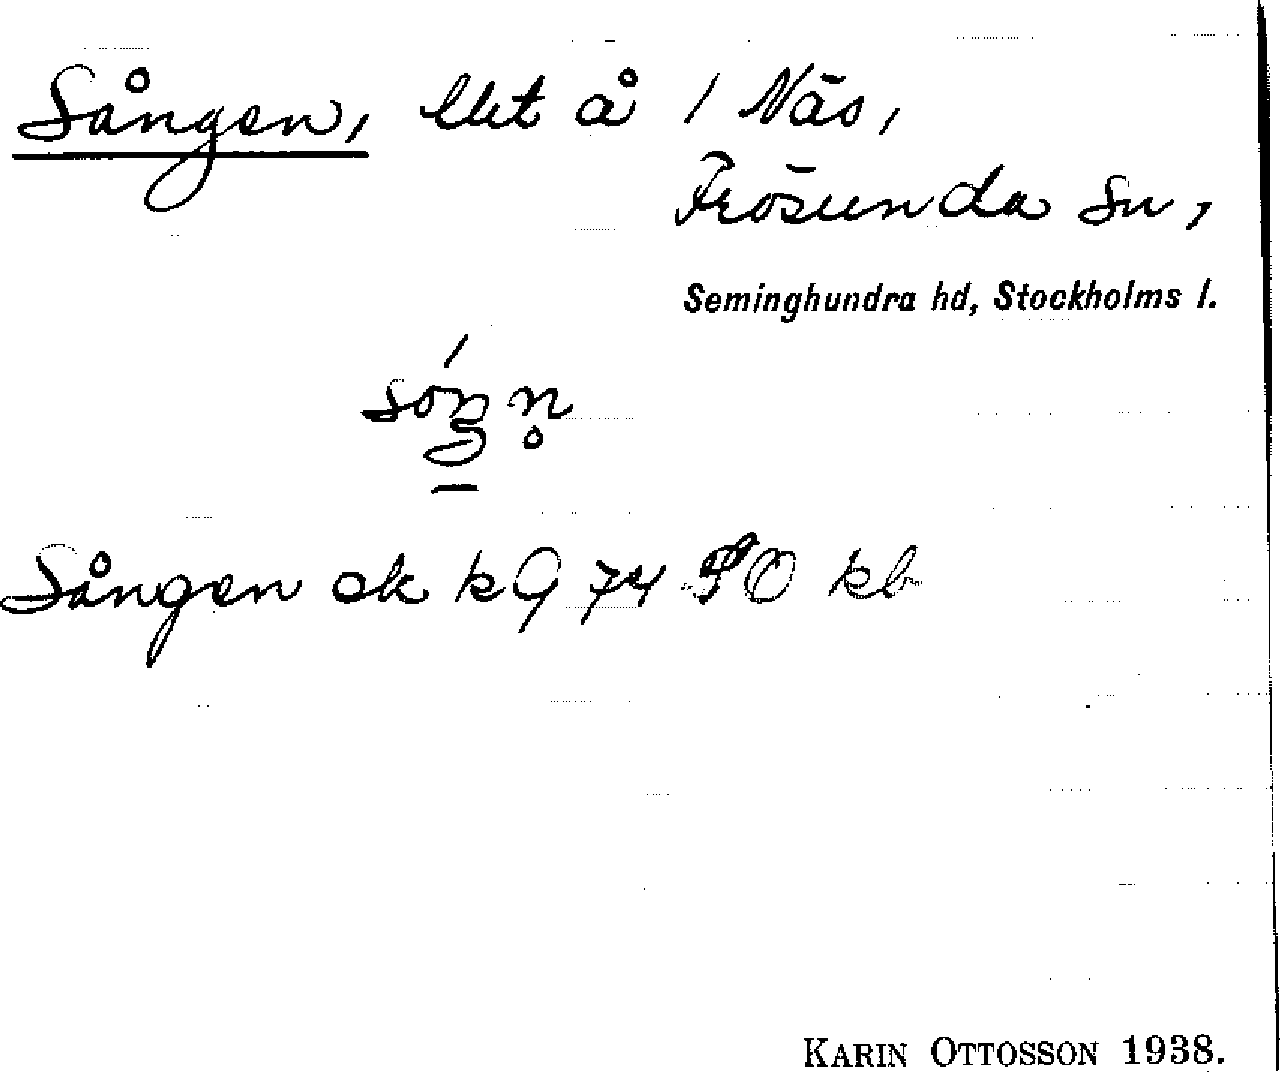 Sången, litet å / Näs,
Frösunda sn,
Seminghundra hd, Stockholms l.
Sången ak kG 74 kb
KARIN OTTOSSON 1938.